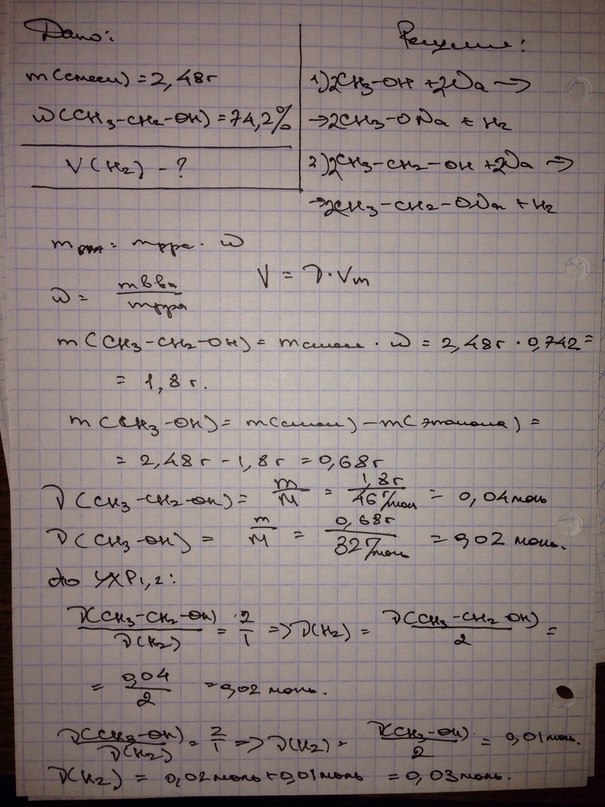 Дано:
m(смеси) = 2,48г
w(CH3-CH2-OH) = 74,2%
V(H2) - ?
Решение:
1) 2CH3-OH + 2Na →
→ 2CH3-ONa + H2
2) 2CH3-CH2-OH + 2Na →
→ 2CH3-CH2-ONa + H2
mв-ва = mр-ра · w
w = mв-ва / mр-ра
V = ν · Vm
m(CH3-CH2-OH) = mсмеси · w = 2,48г · 0,742 =
= 1,8г.
m(CH3-OH) = m(смеси) - m(этанола) =
= 2,48г - 1,8г = 0,68г
ν(CH3-CH2-OH) = m/M = 1,8г / 46г/моль = 0,04 моль
ν(CH3-OH) = m/M = 0,68г / 32г/моль = 0,02 моль.
по УХР1,2:
ν(CH3-CH2-OH) / ν(H2) = 2/1 => ν(H2) = ν(CH3-CH2-OH) / 2 =
= 0,04 / 2 = 0,02 моль.
ν(CH3-OH) / ν(H2) = 2/1 => ν(H2) = ν(CH3-OH) / 2 = 0,01 моль.
ν(H2) = 0,02 моль + 0,01 моль = 0,03 моль.